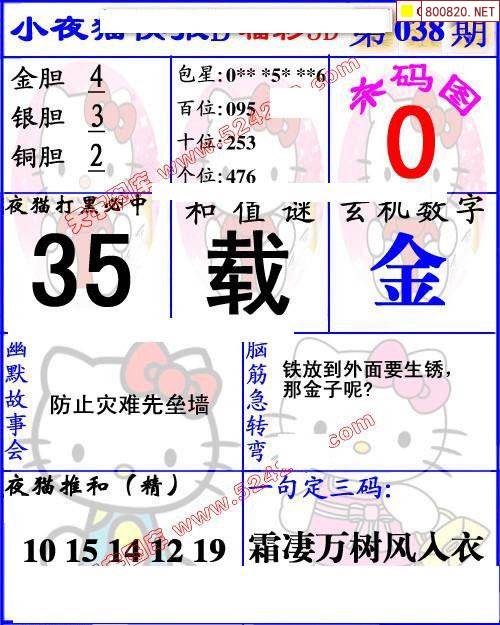 0800820.NET
小夜猫快报D 福彩3D 第038期
金胆 4
银胆 3
铜胆 2
包星:0** *5* **6
百位:095
十位:253
个位:476
杀码图
0
夜猫打黑必中
35
和值谜
载
玄机数字
金
幽默故事会
防止灾难先垒墙
脑筋急转弯
铁放到外面要生锈,
那金子呢?
夜猫推和(精)
10 15 14 12 19
一句定三码:
霜凄万树风入衣
天宇图库 www.5242
.com
天宇图库 www.5242
.com